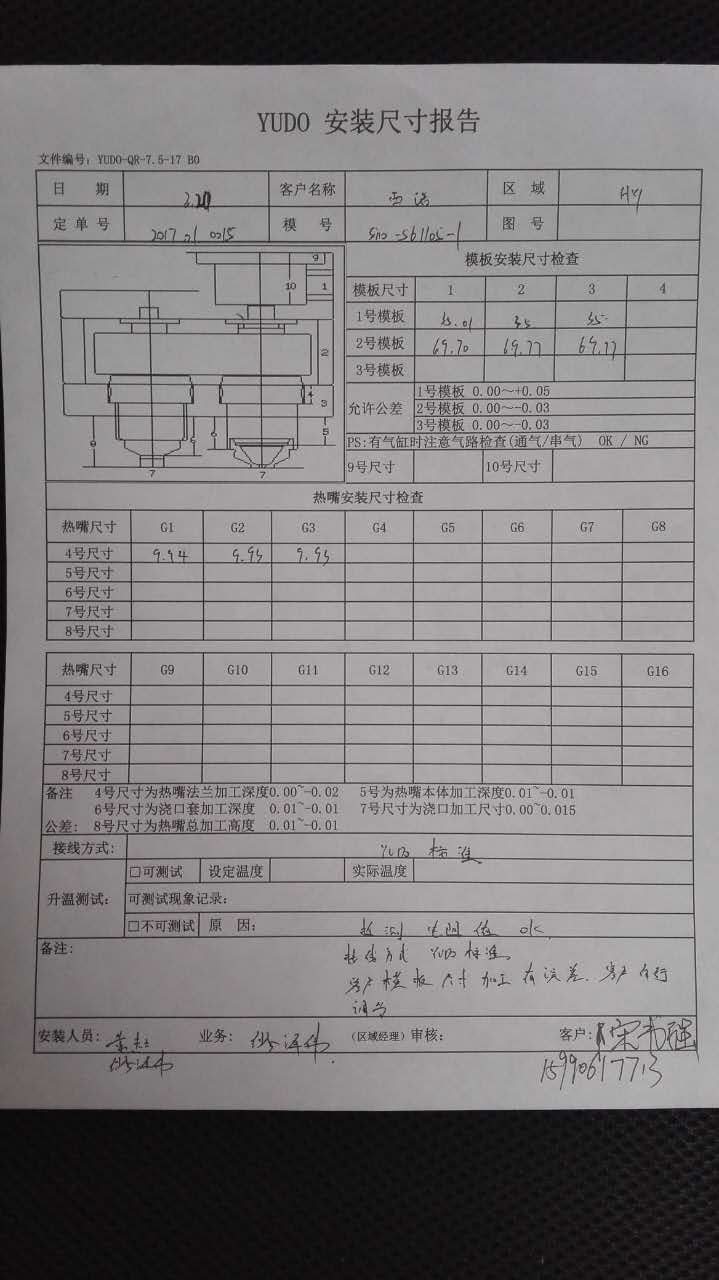 YUDO 安装尺寸报告
文件编号：YUDO-QR-7.5-17 B0
日 期 客户名称 西诺 区 域 HY
定 单 号 模 号 Sino-S61105-1 图 号
9
10 1
2
4
3
8 6 6 8 5
7 7
模板安装尺寸检查
模板尺寸 1 2 3 4
1号模板 35.01 35 35
2号模板 69.70 69.77 69.77
3号模板
允许公差 1号模板 0.00～+0.05
2号模板 0.00～-0.03
3号模板 0.00～-0.03
PS:有气缸时注意气路检查(通气/串气) OK / NG
9号尺寸 10号尺寸
热嘴安装尺寸检查
热嘴尺寸 G1 G2 G3 G4 G5 G6 G7 G8
4号尺寸 9.94 9.95 9.95
5号尺寸
6号尺寸
7号尺寸
8号尺寸
热嘴尺寸 G9 G10 G11 G12 G13 G14 G15 G16
4号尺寸
5号尺寸
6号尺寸
7号尺寸
8号尺寸
备注 4号尺寸为热嘴法兰加工深度0.00~-0.02 5号为热嘴本体加工深度0.01~-0.01
6号尺寸为浇口套加工深度 0.01~-0.01 7号尺寸为浇口加工尺寸0.00~0.015
公差: 8号尺寸为热嘴总加工高度 0.01~-0.01
接线方式: YUDO 标准
升温测试： □可测试 设定温度 实际温度
可测试现象记录:
□不可测试 原 因： 检测 电阻值 OK
备注: 接线方式 YUDO 标准
客户模板尺寸加工有误差. 客户自行
调当
安装人员: 业务: （区域经理）审核: 客户: 宋书强
15990617713